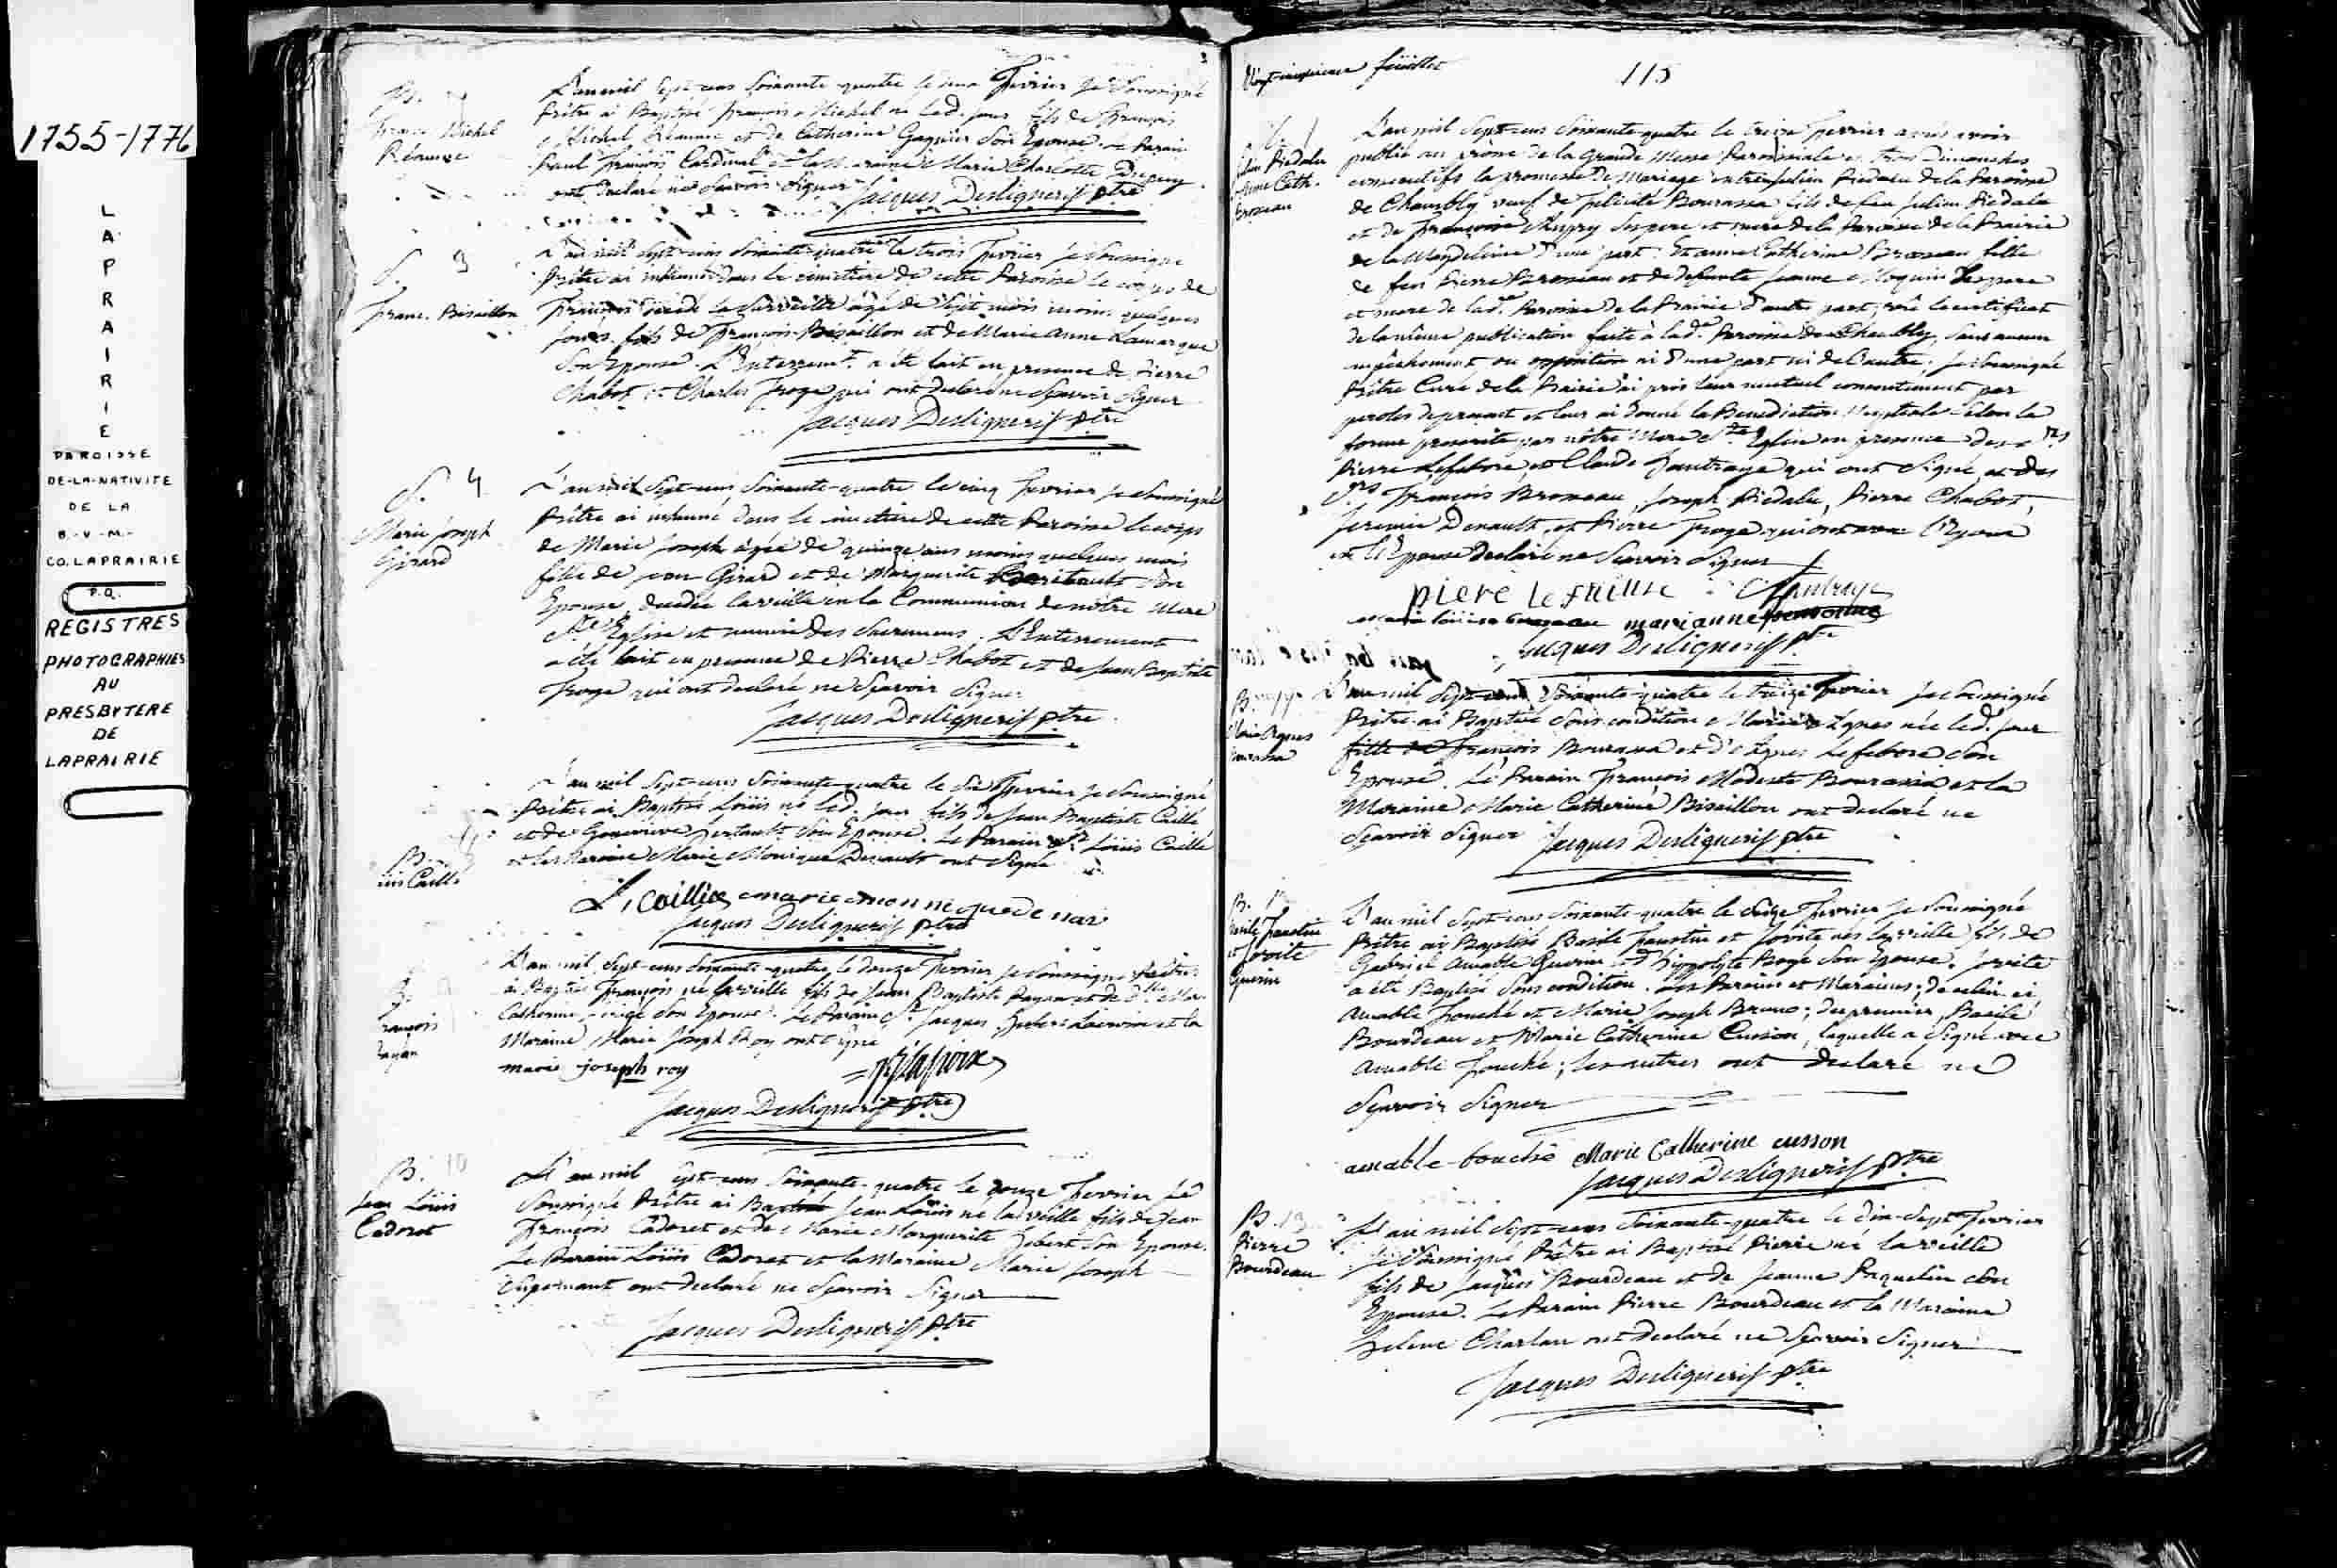 1755-1776
LAPRAIRIE
PAROISSE
DE-LA-NATIVITE
DE LA
B.-V-M.-
CO. LAPRAIRIE
P.Q.
REGISTRES
PHOTOGRAPHIES
AU
PRESBYTERE
DE
LAPRAIRIE
B.
Franc. Michel
Réaume
L'an mil sept-cens soixante-quatre le Fevrier je soussigné
Prêtre ai Baptisé François Michel né led. jour fils de François
Michel Réaume et de Catherine Gagnier son Epouse. Le Parain
Paul François Cardinal et la Maraine Marie Charlotte Dupuy
ont declaré ne sçavoir signer Jacques Desligneris ptre
S. 3
Franc. Bisaillon
L'an mil sept-cens soixante-quatre le trois Fevrier je soussigné
Prêtre ai inhumé dans le cimetiere de cette Paroisse le corps de
François decedé la surveille agé de sept mois moins quelques
jours fils de François Bisaillon et de Marie Anne Lamarque
son Epouse. L'Enterremt. a été fait en presence de Pierre
Chabot et Charles Proge qui ont declaré ne sçavoir signer
Jacques Desligneris ptre
S. 4
Marie Joseph
Girard
L'an mil sept-cens soixante-quatre le cinq Fevrier je soussigné
Prêtre ai inhumé dans le cimetiere de cette Paroisse le corps
de Marie Joseph agée de quinze ans moins quelques mois
fille de jean Girard et de Marguerite son
Epouse, decedée la veille en la Communion de nôtre Mere
Ste Eglise et munie des sacremens. L'Enterrement
a été fait en presence de Pierre Chabot et de Jean Baptiste
Proge qui ont declaré ne sçavoir signer
Jacques Desligneris ptre
B.
Caillé
L'an mil sept-cens soixante-quatre le six Fevrier je soussigné
Prêtre ai Baptisé Loüis né led. jour fils de Jean Baptiste Caillé
et de Genevieve son Epouse. Le Parain Sr. Loüis Caillé
et la Maraine Marie Monique Denault ont signé
L, caillée marie monnique denaut
Jacques Desligneris ptre
B.
françois
L'an mil sept-cens soixante-quatre le douze Fevrier je soussigné Prêtre
ai Baptisé François né la veille fils de Jean Baptiste et de
Catherine son Epouse. Le Parain Sr. Jacques Hubert Lacroix et la
Maraine Marie Joseph Roy ont signé
marie joseph roy
Jacques Desligneris ptre
B. 10
Jean Loüis
Cadoret
L'an mil sept-cens soixante-quatre le douze Fevrier je
soussigné Prêtre ai Baptisé Jean Loüis né la veille fils de Jean
François Cadoret et de Marie Marguerite Hebert son Epouse.
Le Parain Loüis Cadoret et la Maraine Marie Joseph
ont declaré ne sçavoir signer
Jacques Desligneris ptre
feüillet
115
Piedalu
Cath.
Brosseau
L'an mil sept-cens soixante-quatre le treize Fevrier après avoir
publié au prône de la grande Messe Paroissiale trois Dimanches
consecutifs la promesse de Mariage entre Julien Piedalu de la Paroisse
de Chambly veuf de Felicité Bourassa fils de feu Julien Piedalu
et de Françoise Chupry ses pere et mere de la Paroisse de la Prairie
de la Magdeleine d'une part: Et anne Catherine Brosseau fille
de feu Pierre Brosseau et de defunte jeanne Moquin ses pere
et mere de lad. Paroisse de la Prairie d'autre part; vû le certificat
de la même publication faite à lad. Paroisse de Chambly, sans aucun
empêchement ou opposition ni d'une part ni de l'autre; je soussigné
Prêtre Curé de la Prairie ai pris leur mutuel consentement par
paroles de present et leur ai donné la Benediction Nuptiale selon la
forme prescrite par nôtre Mere Ste Eglise en presence des Srs
Pierre Lefebvre et Claude Hautraye qui ont signé et des
Srs François Brosseau, Joseph Piedalu, Pierre Chabot,
Jeremie Denault et Pierre Proge qui ont avec l'Epoux
et l'Epouse declaré ne sçavoir signer
piere Lefaibre
marianne
Jacques Desligneris ptre
B.
Marie Agnes
Bourassa
L'an mil sept-cens soixante-quatre le treize Fevrier je soussigné
Prêtre ai Baptisé sous condition Marie Agnes née led. jour
fille de François Bourassa et d'Agnes Lefebvre son
Epouse. Le Parain François Modeste Bourassa et la
Maraine Marie Catherine Bisaillon ont declaré ne
sçavoir signer Jacques Desligneris ptre
B.
Basile Faustin
et Jovite
Guerin
L'an mil sept-cens soixante-quatre le seize Fevrier je soussigné
Prêtre ai Baptisé Basile Faustin et Jovite nés la veille fils de
Gabriel Amable Guerin et d'Hippolyte Bogé son Epouse. Jovite
a été Baptisé sous condition. Les Parains et Maraines; de celui-ci,
Amable Fouché et Marie Joseph Bruno; du premier, Basile
Bourdeau et Marie Catherine Cusson, laquelle a signé avec
Amable Fouché; les autres ont declaré ne
sçavoir signer
amable fouché Marie Catherine cusson
Jacques Desligneris ptre
B. 13
Pierre
Bourdeau
L'an mil sept-cens soixante-quatre le dix-sept Fevrier
je soussigné Prêtre ai Baptisé Pierre né la veille
fils de Jacques Bourdeau et de Jeanne Paquelin son
Epouse. Le Parain Pierre Bourdeau et la Maraine
Helene Charlan ont declaré ne sçavoir signer
Jacques Desligneris ptre